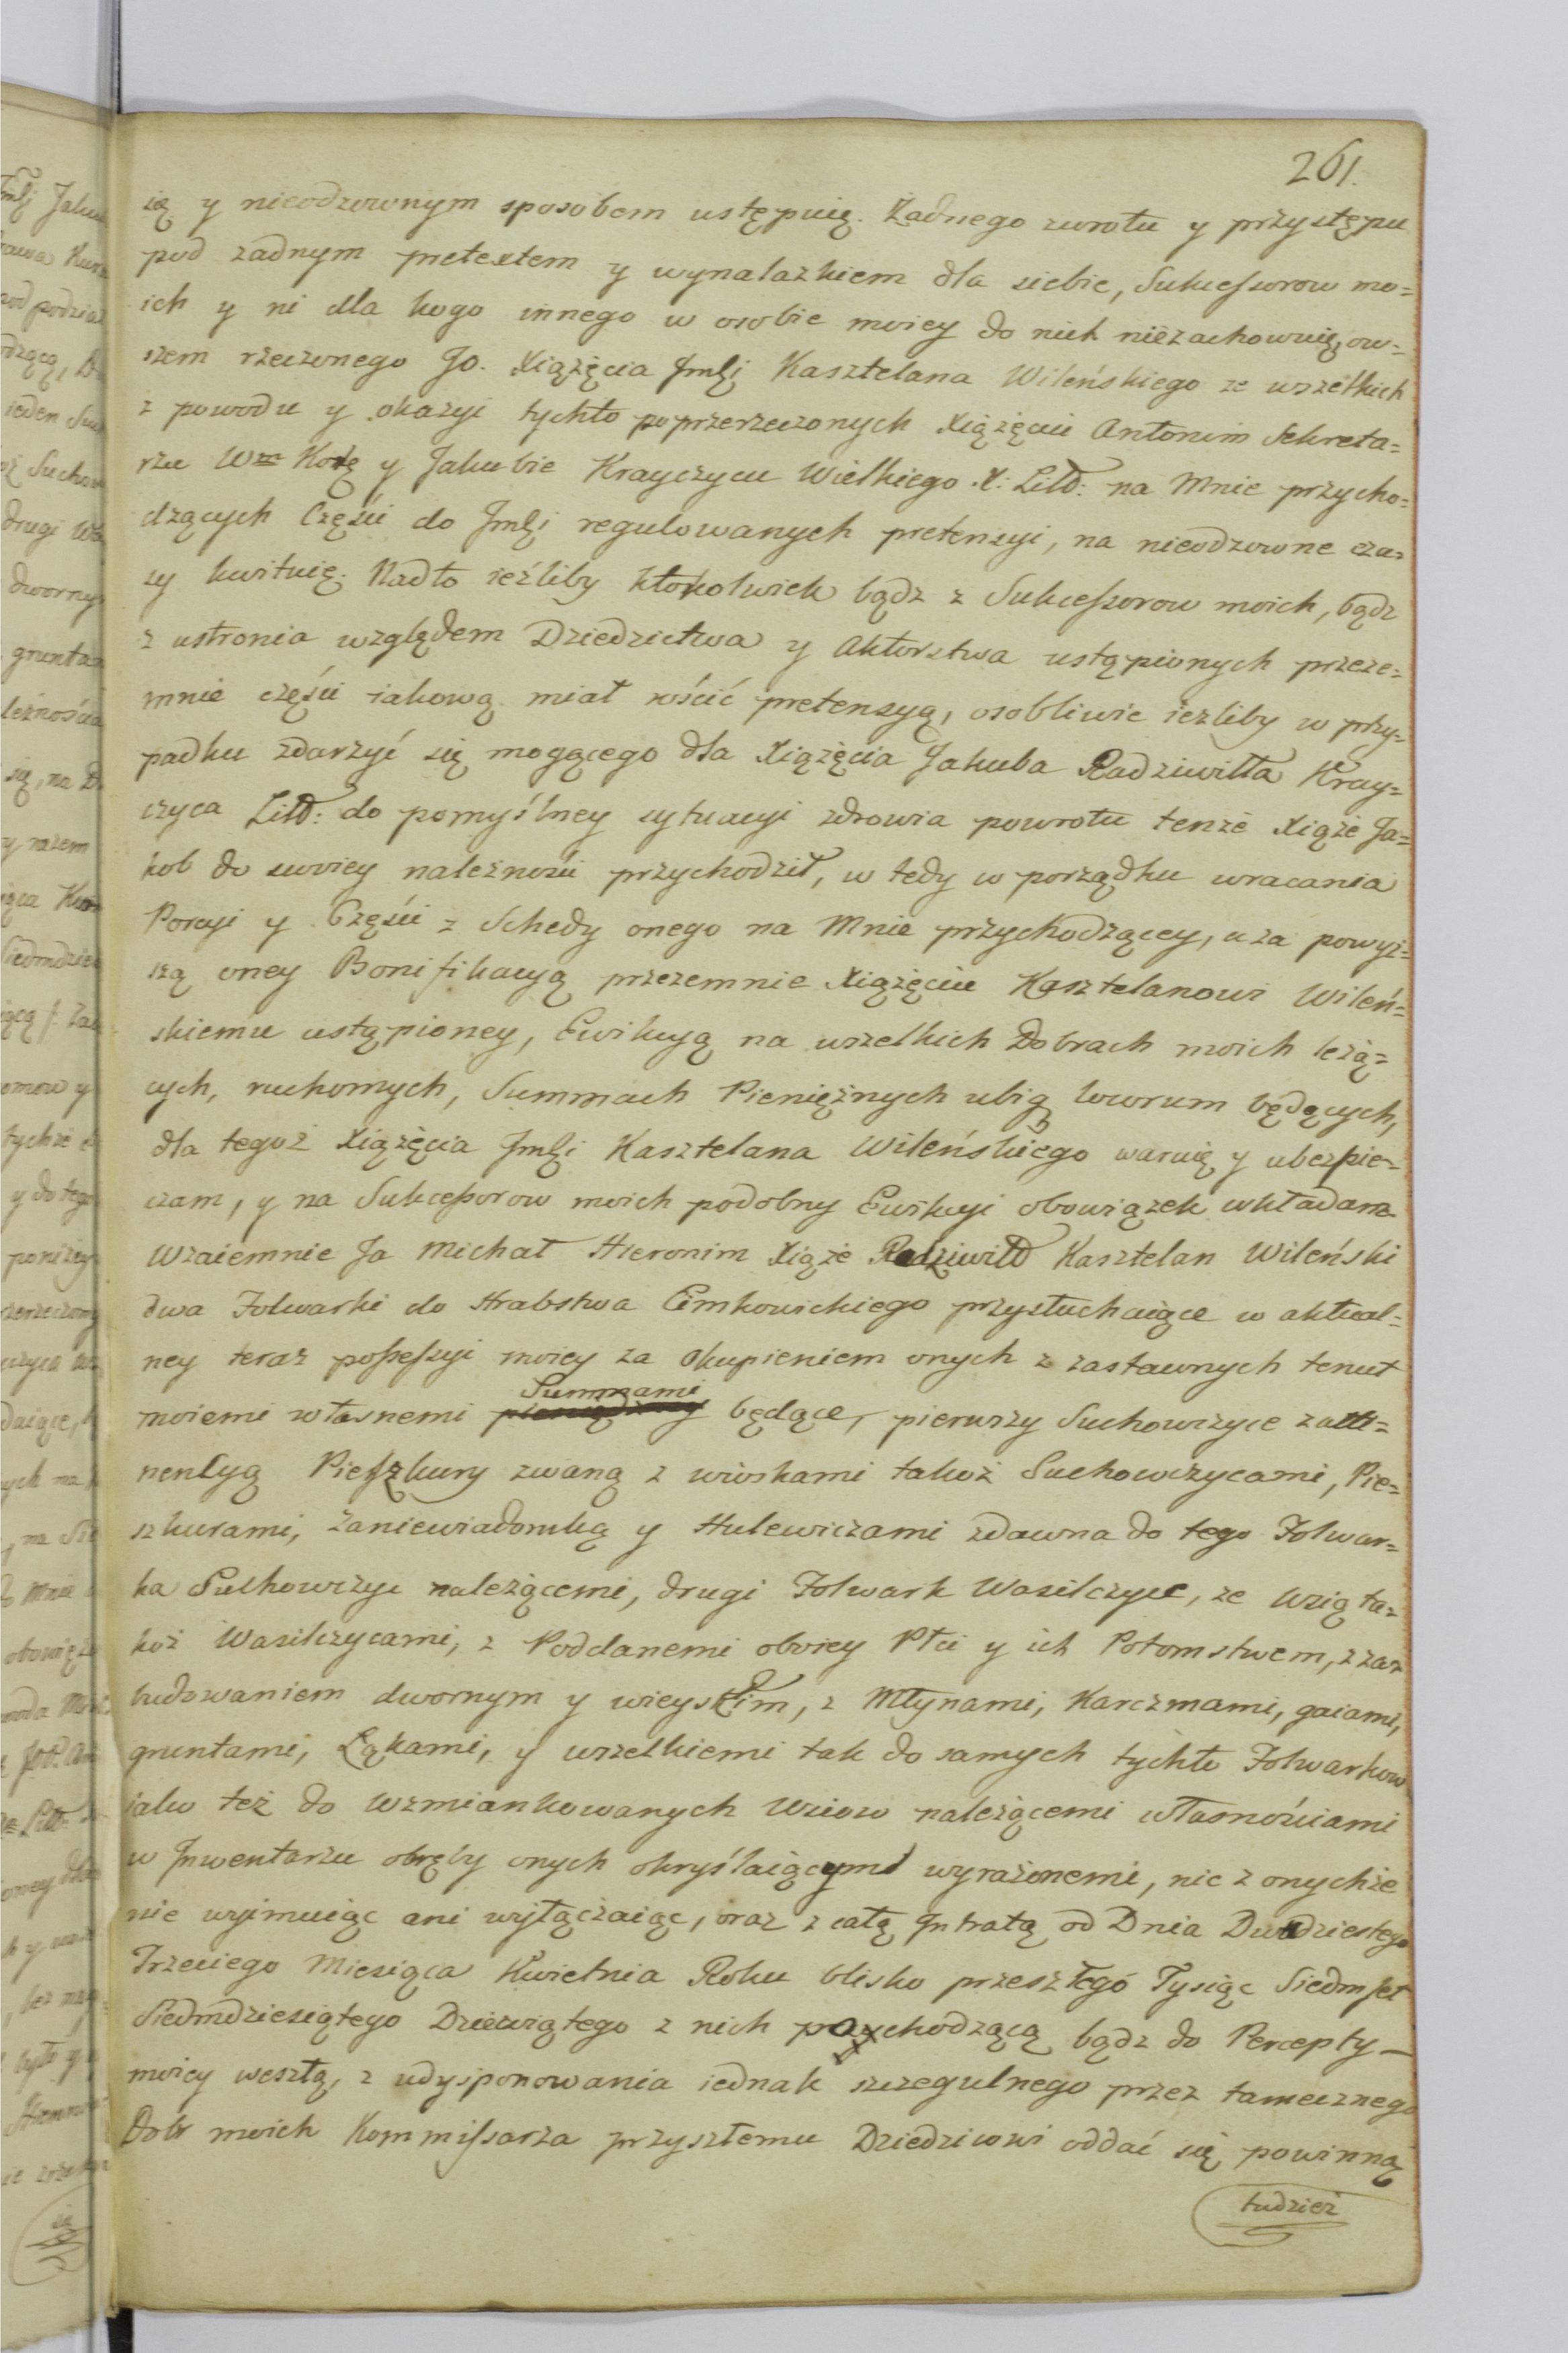 261.
ią y nieodzownym sposobem ustępuię. Żadnego zwrotu y przystępu
pod żadnym pretextem y wynalazkiem dla siebie, Sukcessorow mo=
ich y ni dla kogo innego w osobie moiey do nich niezachowuię, ow=
szem rzeczonego Jo. Xiążęcia Jmći Kasztelana Wileńskiego ze wszelkich
z powodu y okazyi tychto poprzerzeczonych Xiążęciu Antonim Sekreta=
rzu y Jakubie Krayczycu Wielkiego X: Litt: na Mnie przycho=
dzących Części do Jmći regulowanych pretensyi, na nieodzowne cza=
sy kwituię. Nadto ieźliby ktokolwiek bądz z Sukcessorow moich, bądz
z ustronia względem Dziedzictwa y Aktorstwa ustąpionych przeze=
mnie części iakową miał rościć pretensyą, osobliwie ieżliby w przy=
padku zdarzyć się mogącego dla Xiążęcia Jakuba Radziwiłła Kray=
czyca Litt: do pomyślney sytuacyi zdrowia powrotu tenże Xiąże Ja=
kob do swoiey należnosci przychodził, w tedy w porządku wracania
Porcyi y Części z Schedy onego na Mnie przychodzącey, a za powyż=
szą oney Bonifikacyą przezemnie Xiążęciu Kasztelanowi Wileń=
skiemu ustąpioney, Ewikcyą na wszelkich Dobrach moich leżą=
cych, ruchomych, Summach Pieniężnych ubiq locorum będących,
dla tegoż Xiążęcia Jmći Kasztelana Wileńskiego waruię y ubezpie=
czam, y na Sukcessorow moich podobny Ewikcyi obowiązek wkładam.
Wzaiemnie Ja Michał Hieronim Xiąże Radziwiłł Kasztelan Wileński
dwa Folwarki do Hrabstwa Cimkowickiego przysłuchaiące w aktual=
ney teraz possessyi moiey za okupieniem onych z zastawnych tenut
moiemi własnemi Summami będące, pierwszy Suchowczyce z atti=
nencyą Pieszkury zwaną z wioskami takoż Suchowczycami, Pie=
szkurami, Zaniewiadomką y Hulewiczami zdawna do tego Folwar=
ka Suchowczyc należącemi, drugi Folwark Wasilczyce, ze Wsią ta=
koż Wasilczycami, z Poddanemi oboiey Płci y ich Potomstwem, z za=
budowaniem dwornym y wieyskim, z Młynami, Karczmami, gaiami,
gruntami, Łąkami, y wszelkiemi tak do samych tychto Folwarkow
iako też do wzmiankowanych Wsiow należącemi własnościami
w Inwentarzu obręby onych okryślaiącym wyrażonemi, nic z onychże
nie wyimuiąc ani wyłączaiąc, oraz z całą Intratą od Dnia Dwudziestego
Trzeciego Miesiąca Kwietnia Roku blisko przeszłego Tysiąc Siedmset
Siedmdziesiątego Dziewiątego z nich przychodzącą bądz do Percepty
moiey weszłą, z udysponowania iednak szczegulnego przez tamecznego
Dobr moich Kommissarza przyszłemu Dziedzicowi oddać się powinną
tudzież